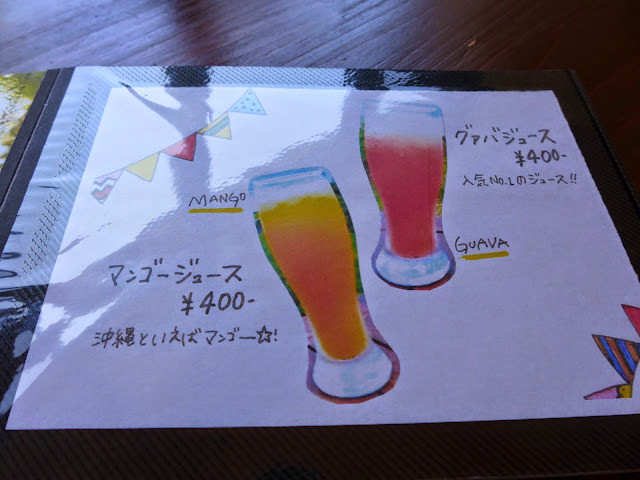 グァバジュース
¥400-
人気No.1のジュース!!
GUAVA
MANGO
マンゴージュース
¥400-
沖縄といえばマンゴー☆!